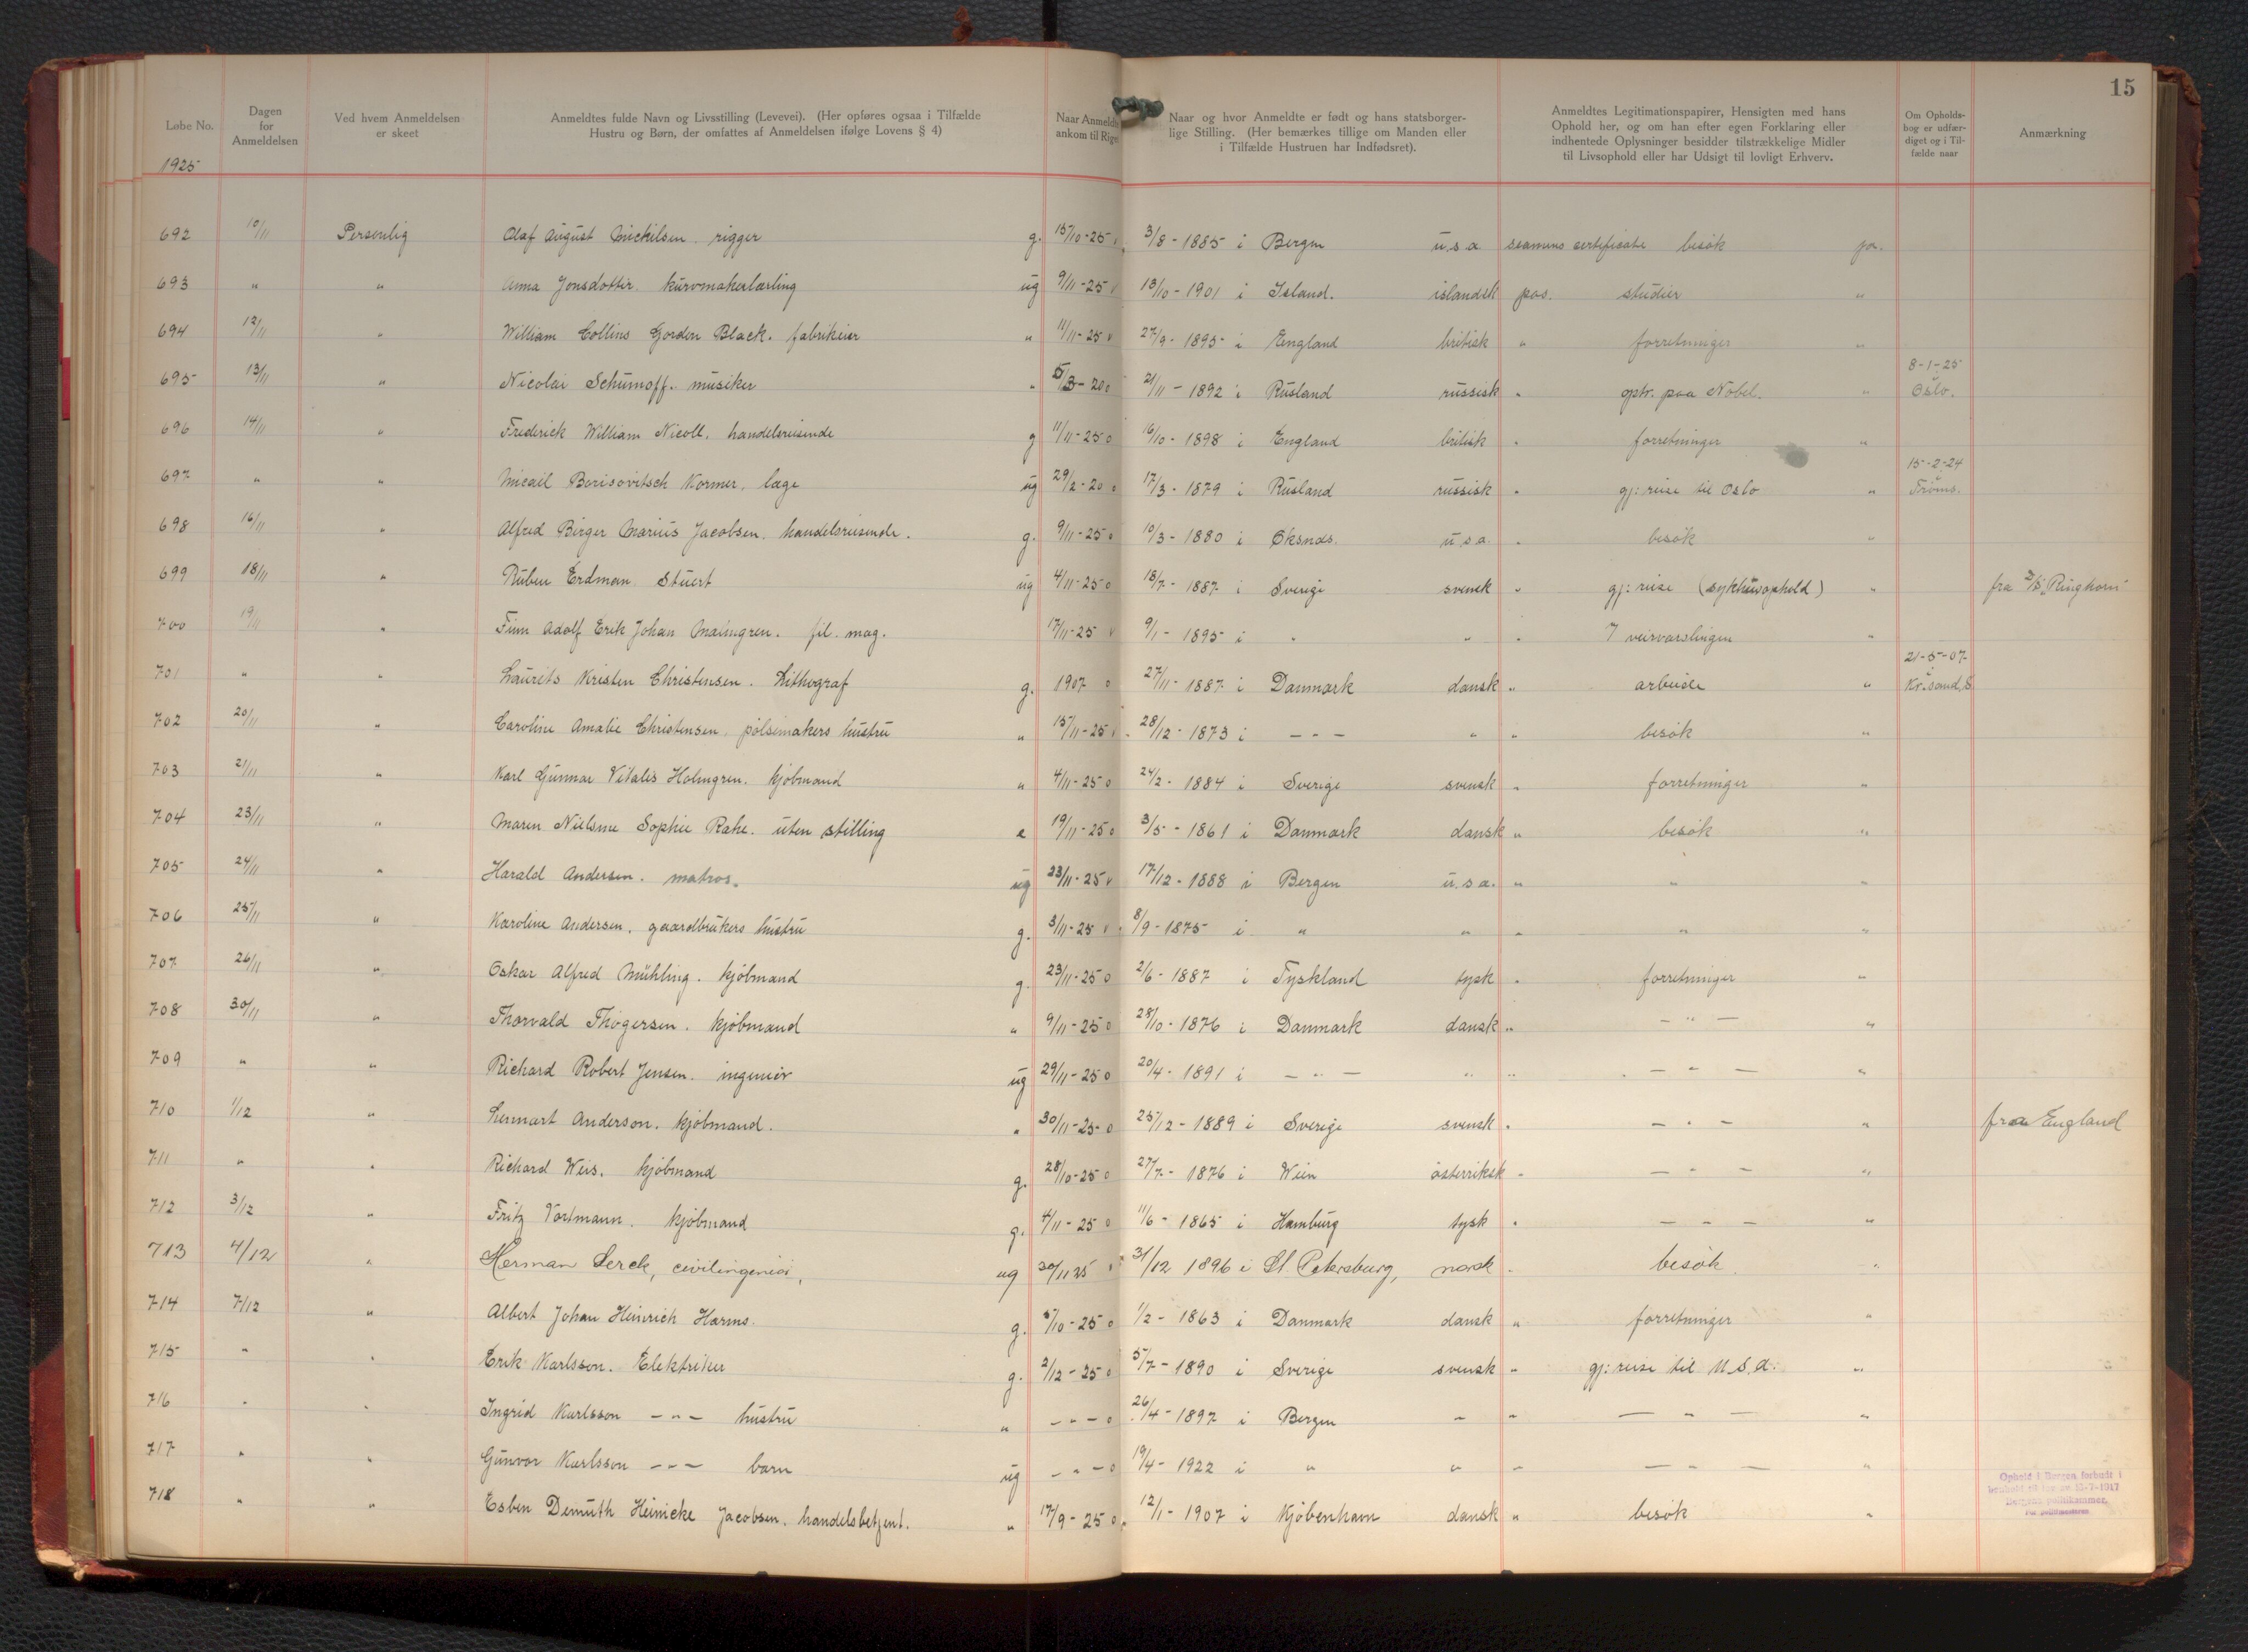 15
Løbe No.
Dagen for Anmeldelsen
Ved hvem Anmeldelsen er skeet
Anmeldtes fulde Navn og Livsstilling (Levevei). (Her opføres ogsaa i Tilfælde Hustru og Børn, der omfattes af Anmeldelsen ifølge Lovens § 4)
Naar Anmeldte ankom til Riget
Naar og hvor Anmeldte er født og hans statsborgerlige Stilling. (Her bemærkes tillige om Manden eller i Tilfælde Hustruen har Indfødsret).
Anmeldtes Legitimationspapirer, Hensigten med hans Ophold her, og om han efter egen Forklaring eller indhentede Oplysninger besidder tilstrækkelige Midler til Livsophold eller har Udsigt til lovligt Erhverv.
Om Opholdsbog er udfærdiget og i Tilfælde naar
Anmærkning
1925
692 10/11 Personlig Olaf August Mickilsen. rigger g. 15/10-25 v 3/8-1885 i Bergen u.s.a seamens certificate besøk ja.
693 " " Anna Jonsdottir. kurvmakerlærling ug 9/11-25 v 13/10-1901 i Island. islandsk pas. studier "
694 12/11 " William Collins Gordon Black. fabrikeier " 11/11-25 v 27/9-1895 i England britisk " forretninger "
695 13/11 " Nicolai Schumoff. musiker " 5/3-20 o 21/11-1892 i Rusland russisk " optr. paa Nobel. " 8-1-25 Oslo.
696 14/11 " Frederick William Nicoll. handelsreisende g 11/11-25 o 16/10-1898 i England britisk " forretninger "
697 " " Micail Borisovitsch Kormer. læge ug 29/2-20 o 17/3-1879 i Rusland russisk " gj: reise til Oslo " 15-2-24 Troms.
698 16/11 " Alfred Birger Marius Jacobsen. handelsreisende. g. 9/11-25 o 10/3-1880 i Øksnds. u.s.a. " besøk "
699 18/11 " Ruben Erdman Stuert ug 4/11-25 o 18/7-1887 i Sverige svensk " gj: reise (sykehusophold) " fra D/S "Ringhorn"
700 19/11 " Finn Adolf Erik Johan Malmgren. fil. mag. 17/11-25 v 9/1-1895 i " " " 7 veirvarslingen "
701 " " Laurits Kristen Christensen. Lithograf g. 1907 o 27/11-1887 i Danmark dansk " arbeide " 21-5-07 Kr.sand.S
702 20/11 " Caroline Amalie Christensen. pølsemakers hustru " 15/11-25 v 28/12-1873 i - " - " " besøk "
703 21/11 " Karl Gunnar Vitalis Holmgren. kjøbmand " 4/11-25 o 24/2-1884 i Sverige svensk " forretninger "
704 23/11 " Maren Nielsine Sophie Rahe. uten stilling e 19/11-25 o 3/5-1861 i Danmark dansk " besøk "
705 24/11 " Harald Andersen. matros. ug 23/11-25 v 17/12-1888 i Bergen u.s.a. " " "
706 25/11 " Karoline Andersen. gaardbrukers hustru g. 3/11-25 v 8/9-1875 i " " " " "
707 26/11 " Oskar Alfred Mühling. kjøbmand g 23/11-25 o 2/6-1887 i Tyskland tysk " forretninger "
708 30/11 " Thorvald Thøgersen. kjøbmand " 9/11-25 o 28/10-1876 i Danmark dansk " - " - "
709 " " Richard Robert Jensen. ingeniør ug 29/11-25 o 20/4-1891 i - " - " " - " - "
710 1/12 " Lennart Anderson. kjøbmand. " 30/11-25 o 25/12-1889 i Sverige svensk " - " - " fra England
711 " " Richard Weis. kjøbmand g. 28/10-25 o 27/7-1876 i Wien østerriksk " - " - "
712 3/12 " Fritz Vortmann. kjøbmand g. 4/11-25 o 11/6-1865 i Hamburg tysk " - " - "
713 4/12 " Herman Lerck, civilingeniør, ug 30/11 25 31/12 1896 i St. Petersburg, norsk " besøk. "
714 7/12 " Albert Johan Heinrich Harms. g. /10-25 o 1/2-1863 i Danmark dansk " forretninger "
715 " " Erik Karlsson. Elektriker g. 2/12-25 o 5/7-1890 i Sverige svensk " gj: reise til U.S.A. "
716 " " Ingrid Karlsson - " - hustru " - " - o 26/4-1897 i Bergen " " - " - "
717 " " Gunvor Karlsson - " - barn ug - " - o 19/4-1922 i " " " - " - "
718 " " Esben Demuth Heinicke Jacobsen. handelsbetjent. " 17/9-25 o 12/1-1907 i Kjøbenhavn dansk " besøk "
Ophold i Bergen forbudt i
henhold til lov av 13-7-1917
Bergens politikammer.
For politimesteren